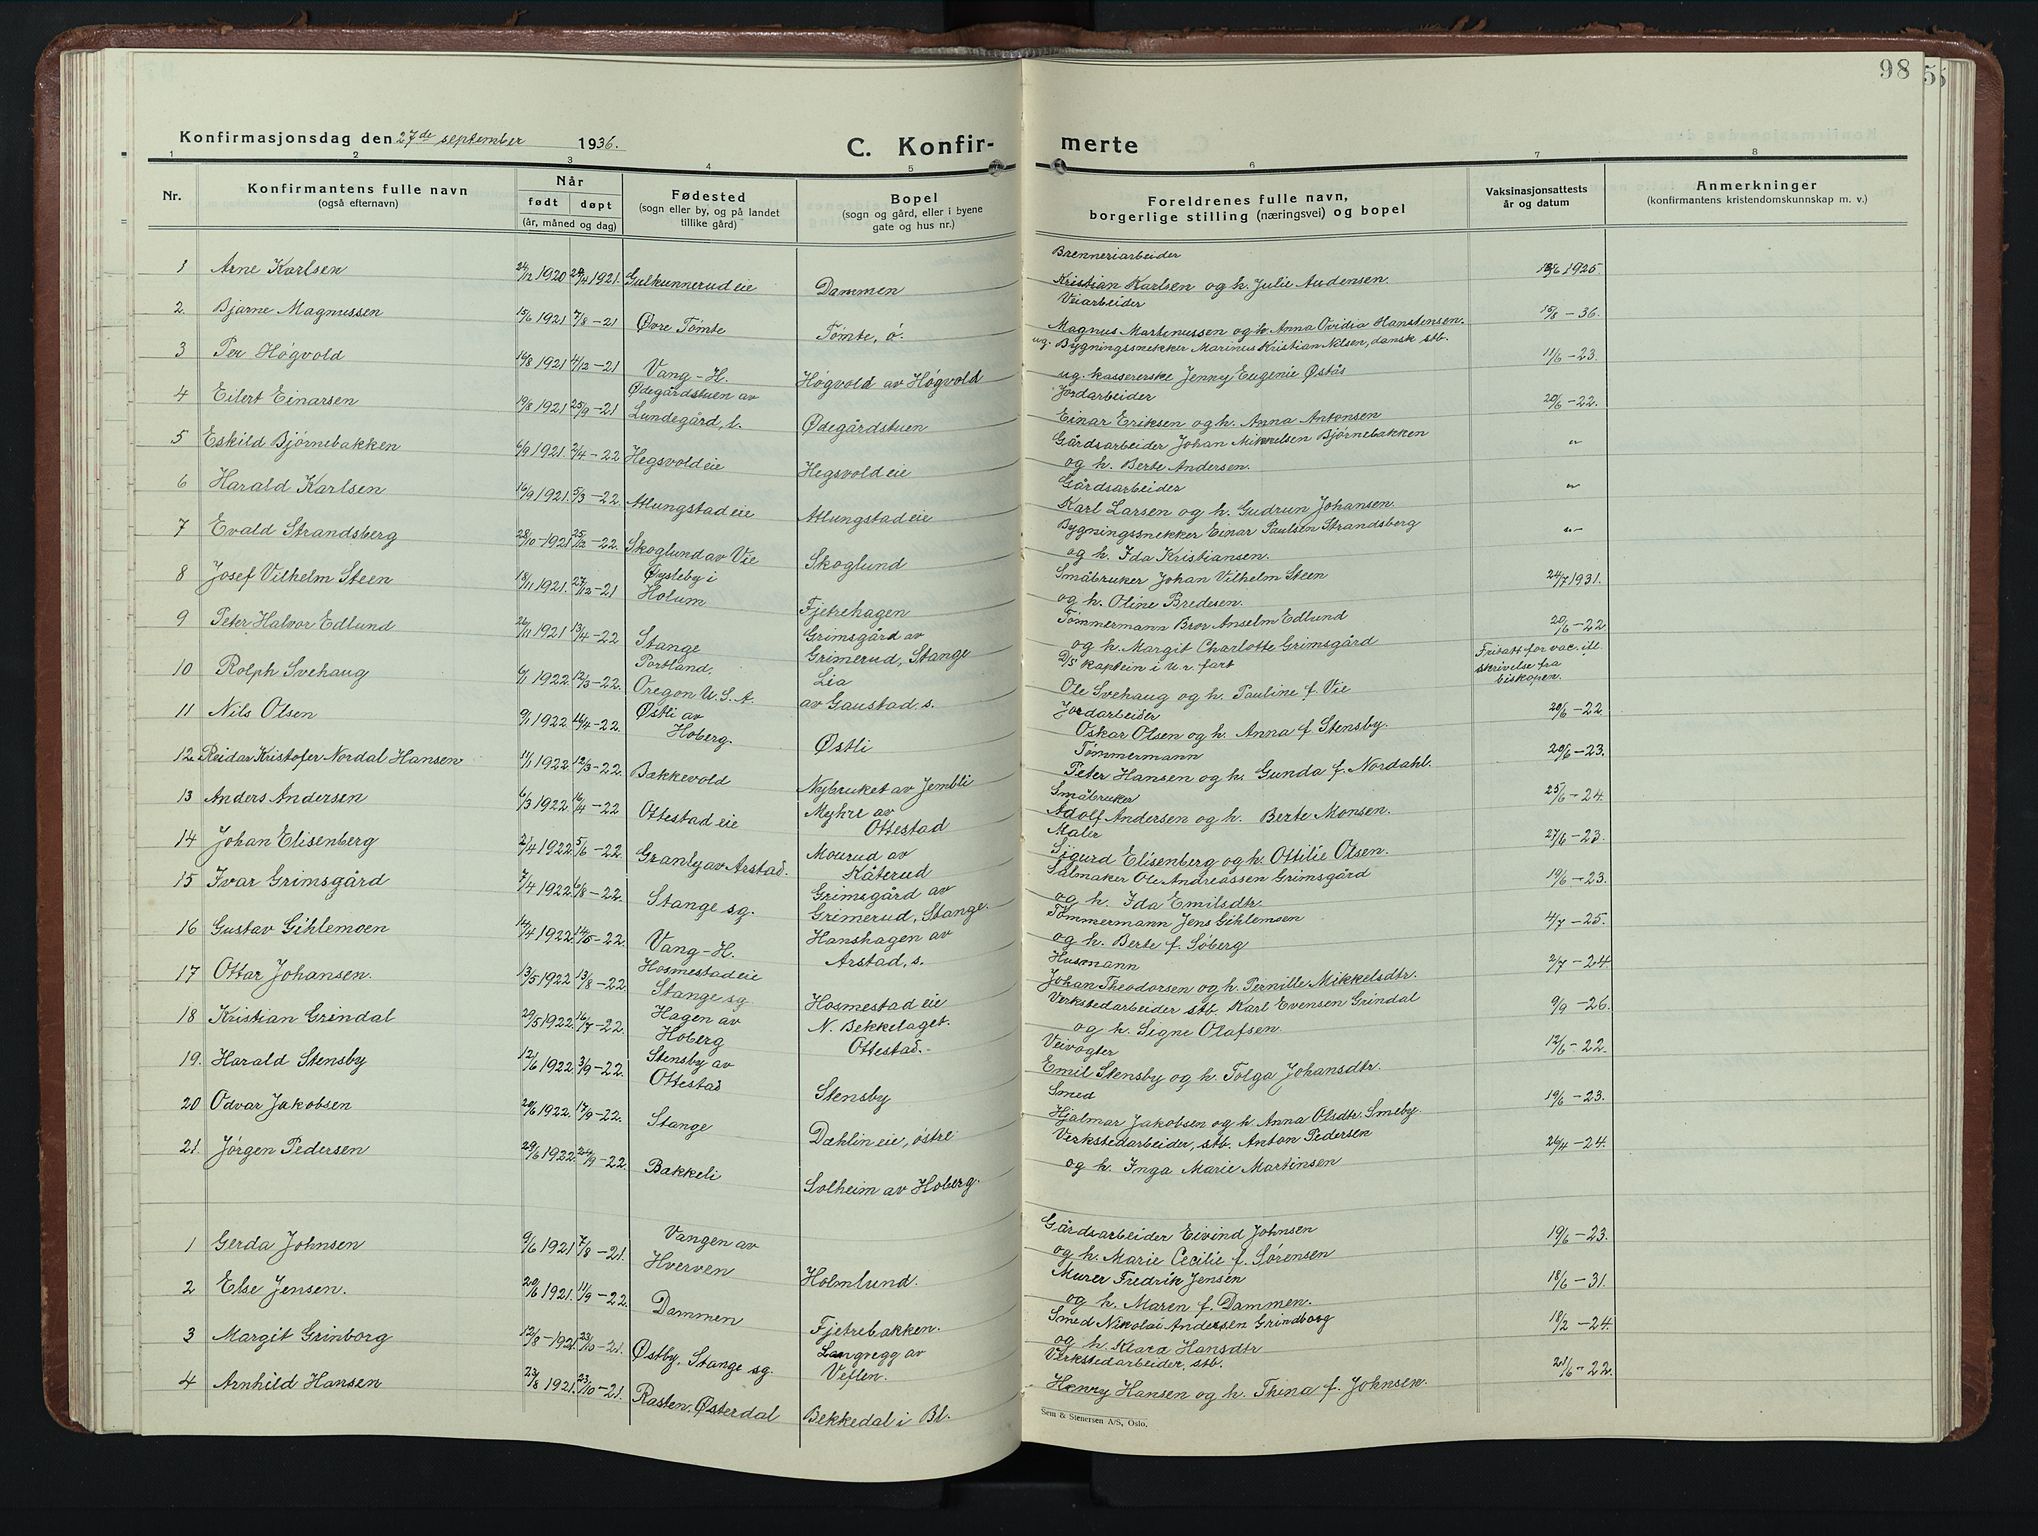 98 55
Konfirmasjonsdag den 27de september 1936.
C. Konfir- merte
1 2 3 4 5 6 7 8
Nr. Konfirmantens fulle navn (også efternavn) Når født døpt (år, måned og dag) Fødested (sogn eller by, og på landet tillike gård) Bopel (sogn og gård, eller i byene gate og hus nr.) Foreldrenes fulle navn, borgerlige stilling (næringsvei) og bopel Vaksinasjonsattests år og datum Anmerkninger (konfirmantens kristendomskunnskap m. v.)
1 Arne Karlsen 24/12 1920 24/4 1921. Gulkunnerud eie Dammen Brenneriarbeider Kristian Karlsen og h. Julie Audensen. 1925.
2. Bjarne Magnussen 15/6 1921 7/8-21 Øvre Tømte Tømte, ø. Veiarbeider Magnus Martinussen og h. Anna Ovidia Hanstensen. 15/8-36.
3 Per Høgvold 16/8 1921 4/12-21 Vang-H. Høgvold av Høgvold ug. Bygningssnekker Marinus Kristian Nilsen, dansk stb. ug. kassererske Jenny Eugenie Østås 11/6-23.
4 Eilert Einarsen 19/8 1921 25/9-21 Ødegårdstuen av Lundegård, l. Ødegårdstuen Jordarbeider Einar Eriksen og h. Anna Antonsen 20/6-22.
5 Eskild Bjørnebakken 6/9 1921. 2/4-22 Hegsvold eie Hegsvold eie Gårdsarbeider Johan Mikkelsen Bjørnebakken og h. Berte Andersen. -"-
6 Harald Karlsen 16/9 1921. 5/3-22. Atlungstad eie Atlungstad eie Gårdsarbeider Karl Larsen og h. Gudrun Johansen. -"-
7 Evald Strandsberg 28/10-1921 25/12-22. Skoglund av Vie Skoglund Bygningssnekker Einar Paulsen Strandsberg og h. Ida Kristiansen. -"-
8 Josef Vilhelm Steen 18/11 1921. 27/12-21 Øysleby i Holum Fjetrehagen Småbruker Johan Vilhelm Steen og h. Oline Bredesen. 24/7 1931.
9 Peter Halvor Edlund 26/11 1921 13/4-22 Stange Grimsgård av Grimerud, Stange Tømmermann Bror Anselm Edlund og h. Margit Charlotte Grimsgård 20/6-22.
10 Rolph Svehaug 6/1 1922 12/3-22. Portland, Oregon U.S.A. Lia av Gaustad s. D/S kaptein i u.r. fart Ole Svehaug og h. Pauline f. Vie Fritatt for vac. ill. skrivelse fra biskopen.
11 Nils Olsen 9/1 1922. 16/4-22. Østli av Hoberg. Østli Jordarbeider Oskar Olsen og h. Anna f. Stensby. 20/6-22.
12 Reidar Kristofer Nordal Hansen 11/1 1922 12/3-22. Bakkevold Nybruket av Jembli Tømmermann Peter Hansen og h. Gunda f. Nordahl. 20/6-23.
13 Anders Andersen 6/3 1922. 16/4-22 Ottestad eie Myhre av Ottestad Småbruker Adolf Andersen og h. Berte Monsen. 25/6-24.
14 Johan Elisenberg 2/4 1922. 5/6-22. Granly av Arstad. Mourud av Kåterud Maler Sigurd Elisenberg og h. Ottilie Olsen. 27/6-23.
15 Ivar Grimsgård 7/4 1922. 6/8-22. Stange sg. Grimsgård av Grimerud, Stange. Salmaker Ole Andreassen Grimsgård og h. Ida Emilsdtr. 19/6-23.
16 Gustav Gihlemoen 12/4 1922. 14/5-22. Vang-H. Hanshagen av Arstad, s. Tømmermann Jens Gihlemoen og h. Berte f. Søberg 4/7-25.
17 Ottar Johansen. 13/5 1922 13/8-22. Hosmestad eie Stange sg. Hosmestad eie Husmann Johan Theodorsen og h. Pernille Mikkelsdtr. 2/7-24
18 Kristian Grindal 29/5 1922. 16/7-22. Hagen av Hoberg N. Bekkelaget. Ottestad. Verkstedarbeider stb. Karl Evensen Grindal og h. Signe Olafsen. 9/9-26.
19. Harald Stensby 12/6 1922. 3/9-22. Stensby av Ottestad Stensby Veivogter Emil Stensby og h. Tolga Johansdtr. 12/6-22.
20 Odvar Jakobsen 20/6 1922. 17/9-22. Stange Dæhlin eie, østre Smed Hjalmar Jakobsen og h. Anna Olsdtr. Smeby. 19/6-23.
21. Jørgen Pedersen 29/6 1922. 24/9-22. Bakkeli Solheim av Hoberg. Verkstedarbeider, stb. Anton Pedersen og h. Inga Marie Martinsen 26/4-24.
1 Gerda Johnsen 9/6 1921 7/8-21. Vangen av Hverven Holmlund. Gårdsarbeider Eivind Johnsen og h. Marie Cecilie f. Sørensen 19/6-23.
2 Else Jensen. 20/6 1921. 11/9-22. Dammen Fjetrebakken. Murer Fredrik Jensen og h. Maren f. Dammen. 18/6-31.
3 Margit Grinborg 12/8-1921. 23/10-21. Østby, Stange sg. Langregg av Veflen. Smed Nikolai Andersen Grindborg og h. Klara Hansdtr 19/2-24.
4 Arnhild Hansen 27/8 1921. 23/10-21. Rasten, Østerdal Bekkedal i Bl. Verkstedarbeider, stb. Henry Hansen og h. Thina f. Johnsen. 21/6-22.
Sem & Stenersen A/S, Oslo.